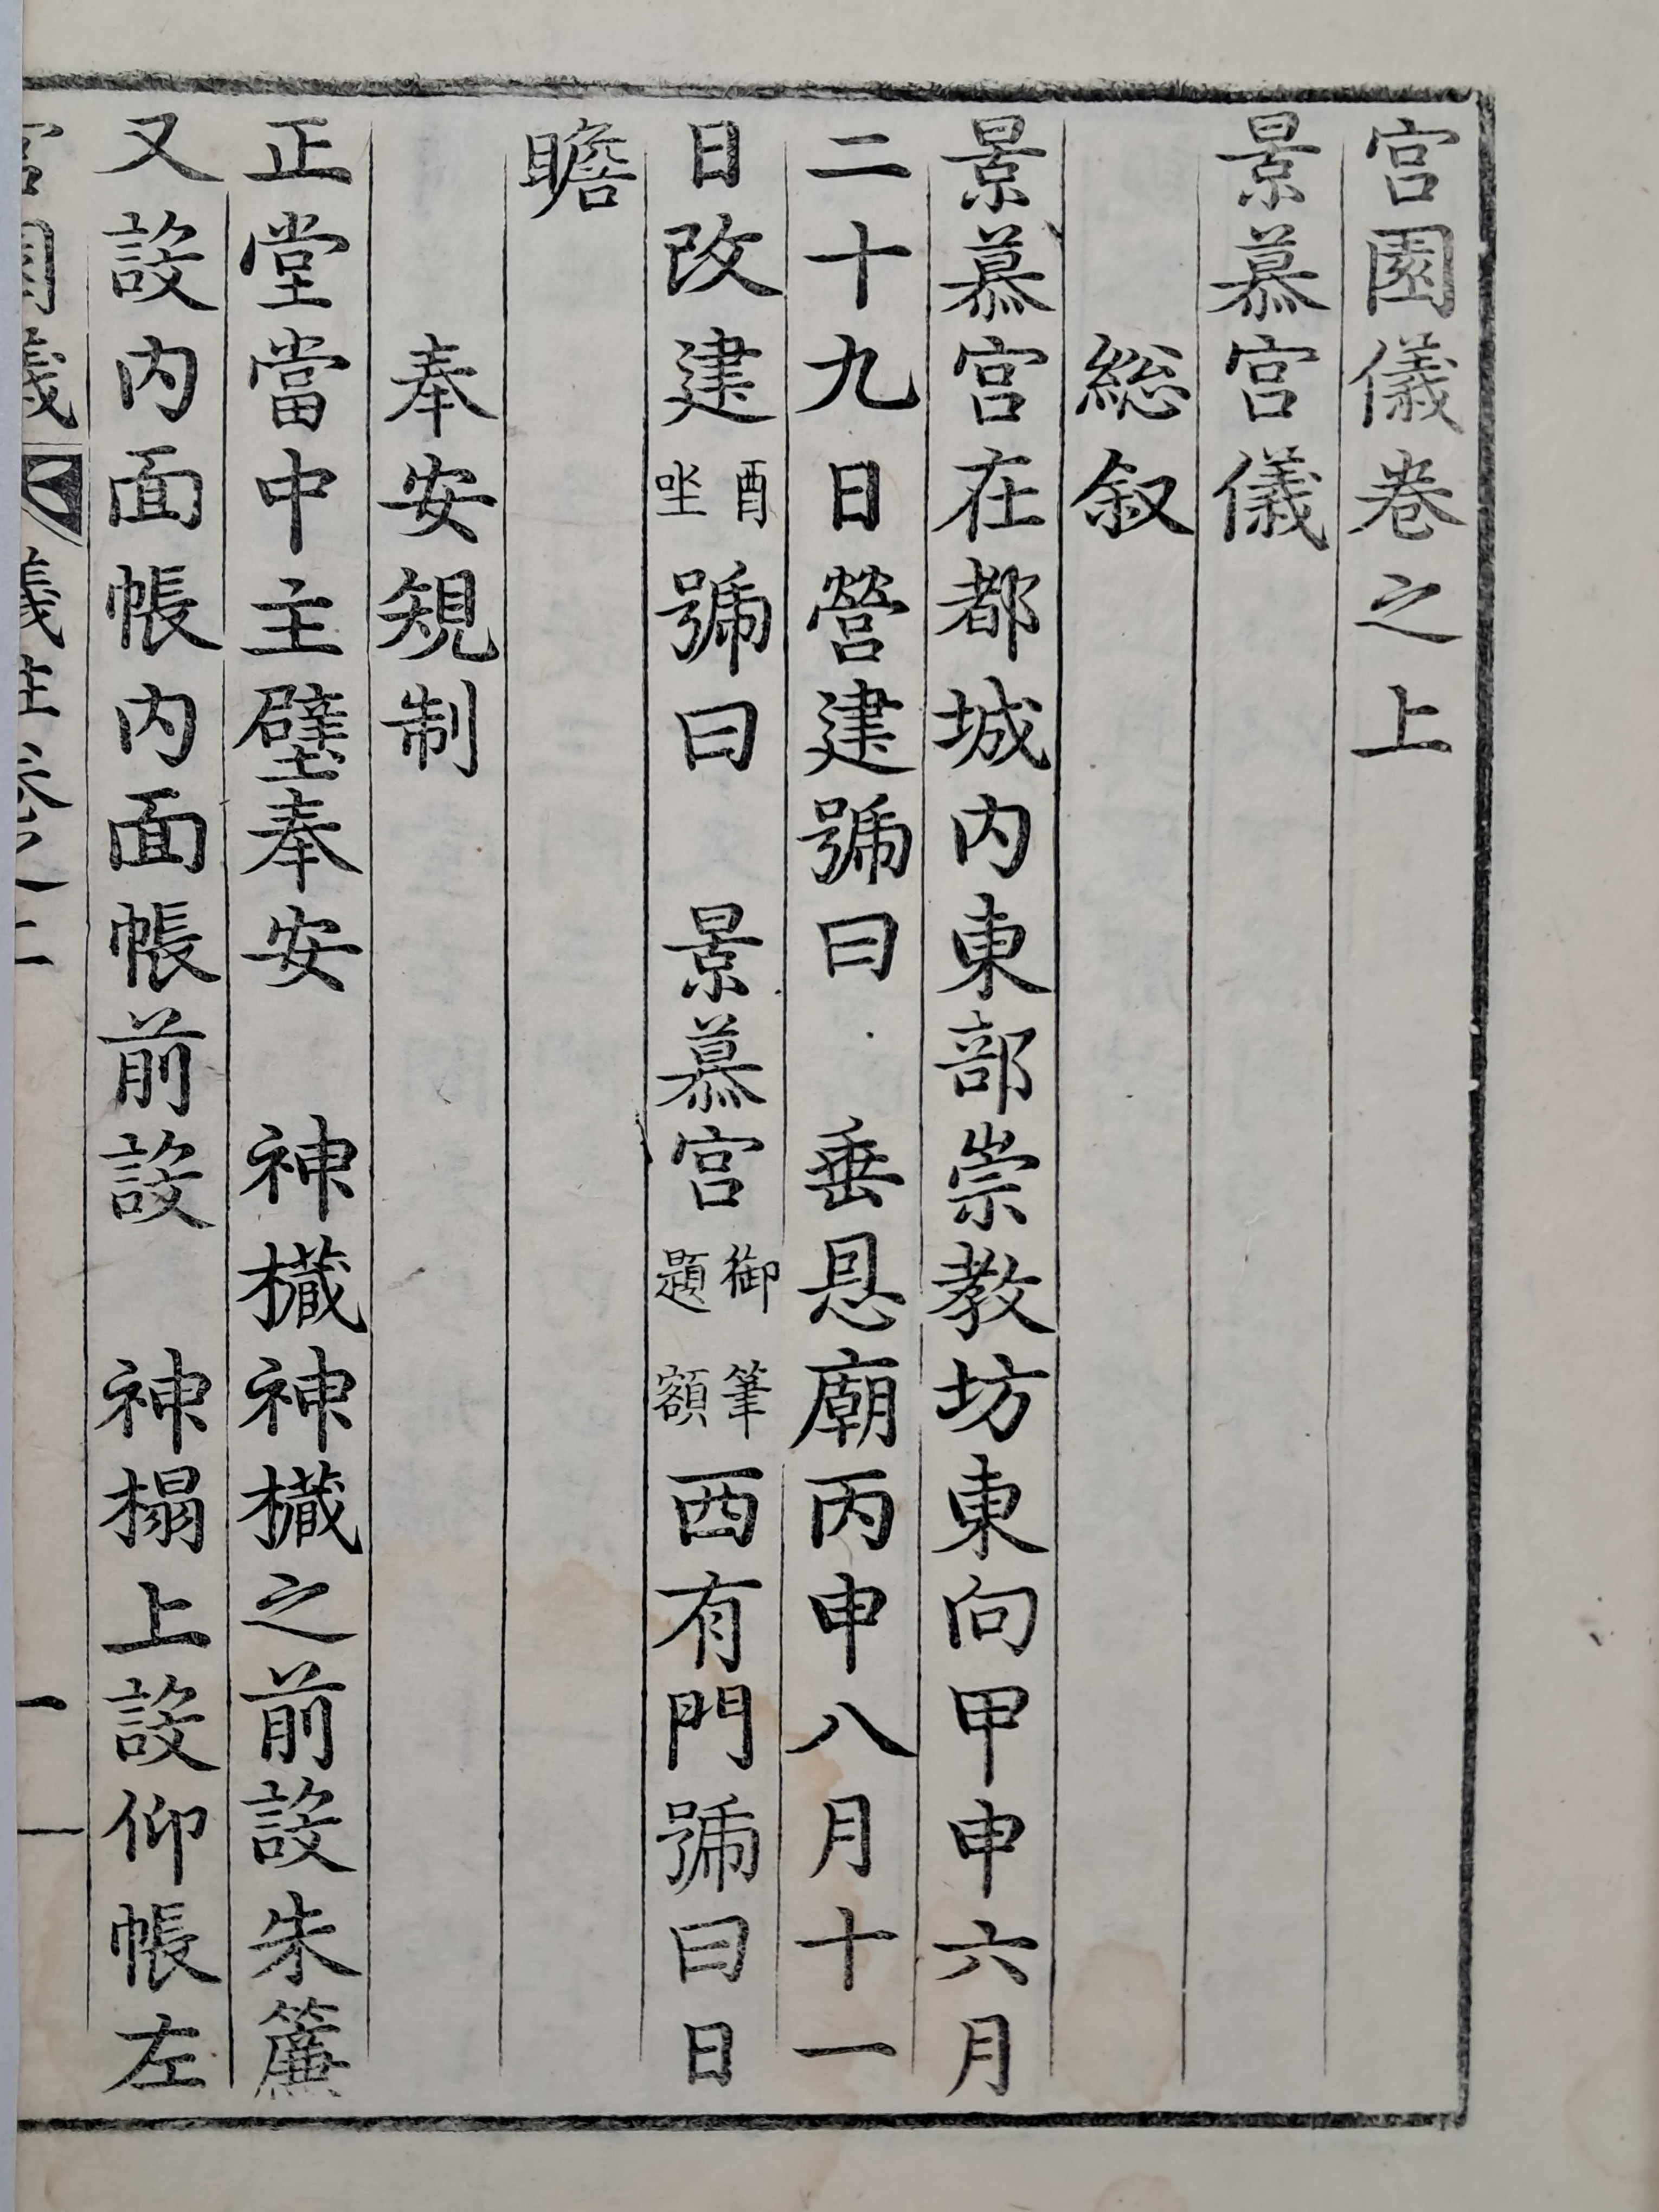 宮園儀卷之上
景慕宮儀
緫叙
景慕宮在都城内東部崇教坊東向甲申六月
二十九日營建號曰　垂恩廟丙申八月十一
日改建酉坐號曰　景慕宮御筆題額西有門號曰日
瞻
奉安規制
正堂當中主壁奉安　神㰇神㰇之前設朱簾
又設内面帳内面帳前設　神榻上設仰帳左